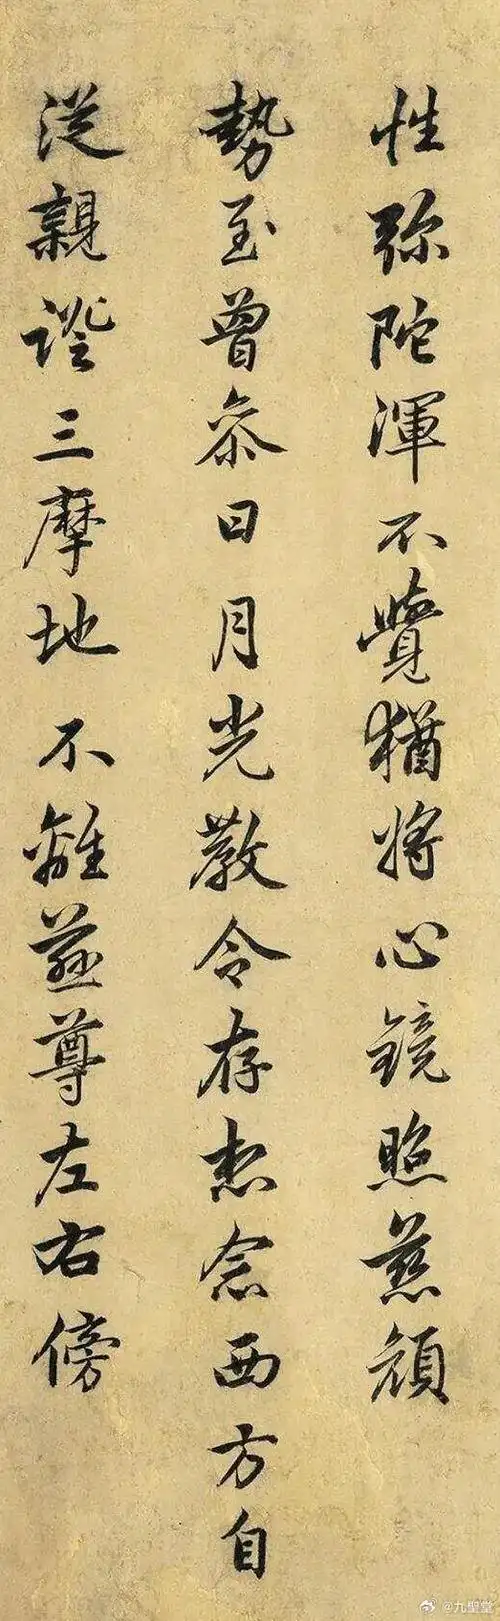 性弥陀渾不覺猶將心鏡照慈顏
勢至曾叅日月光教令存想念西方自
従親證三摩地不離慈尊左右傍
@九聖堂